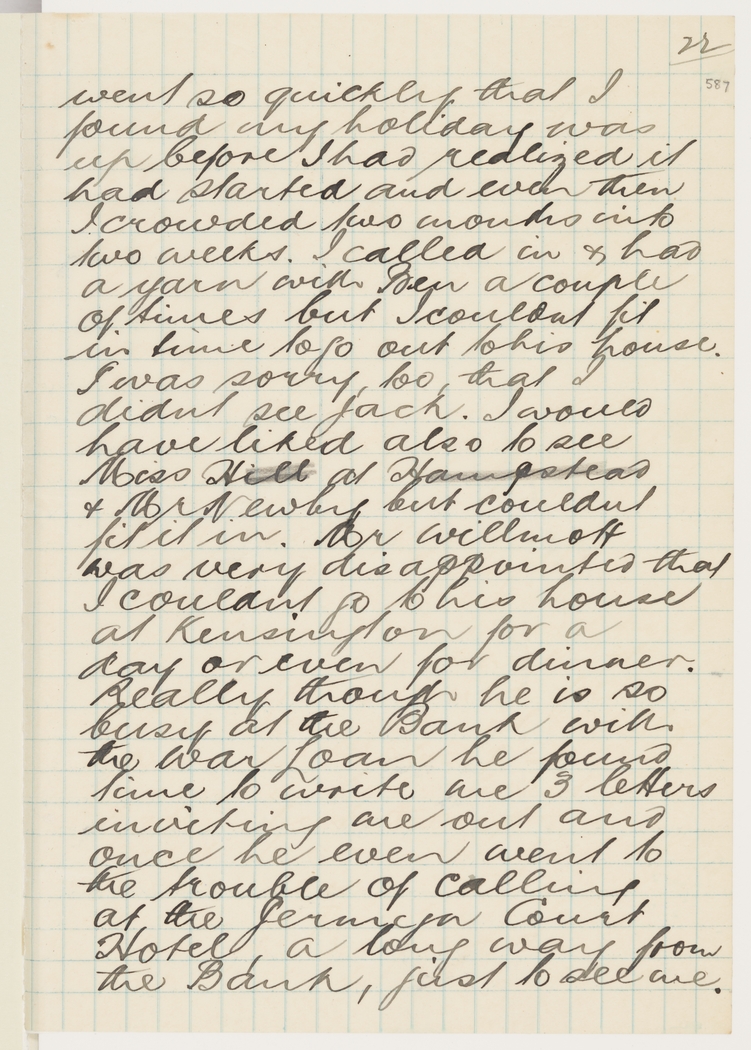 22
587
went so quickly that I
found my holiday was
up before I had realized it
had started and even then
I crowded two months into
two weeks. I called in & had
a yarn with Ben a couple
of times but I couldnt fit
in time to go out to his house.
I was sorry, too, that I
didnt see Jack. I would
have liked also to see
Miss Hill at Hampstead
& Mr Newby but couldnt
fit it in. Mr Willmott
was very disappointed that
I couldnt go to his house
at Kensington for a
day or even for dinner.
Really though he is so
busy at the Bank with
the War Loan he found
time to write me 3 letters
inviting me out and
once he even went to
the trouble of calling
at the Jermyn Court
Hotel, a long way from
the Bank, just to see me.